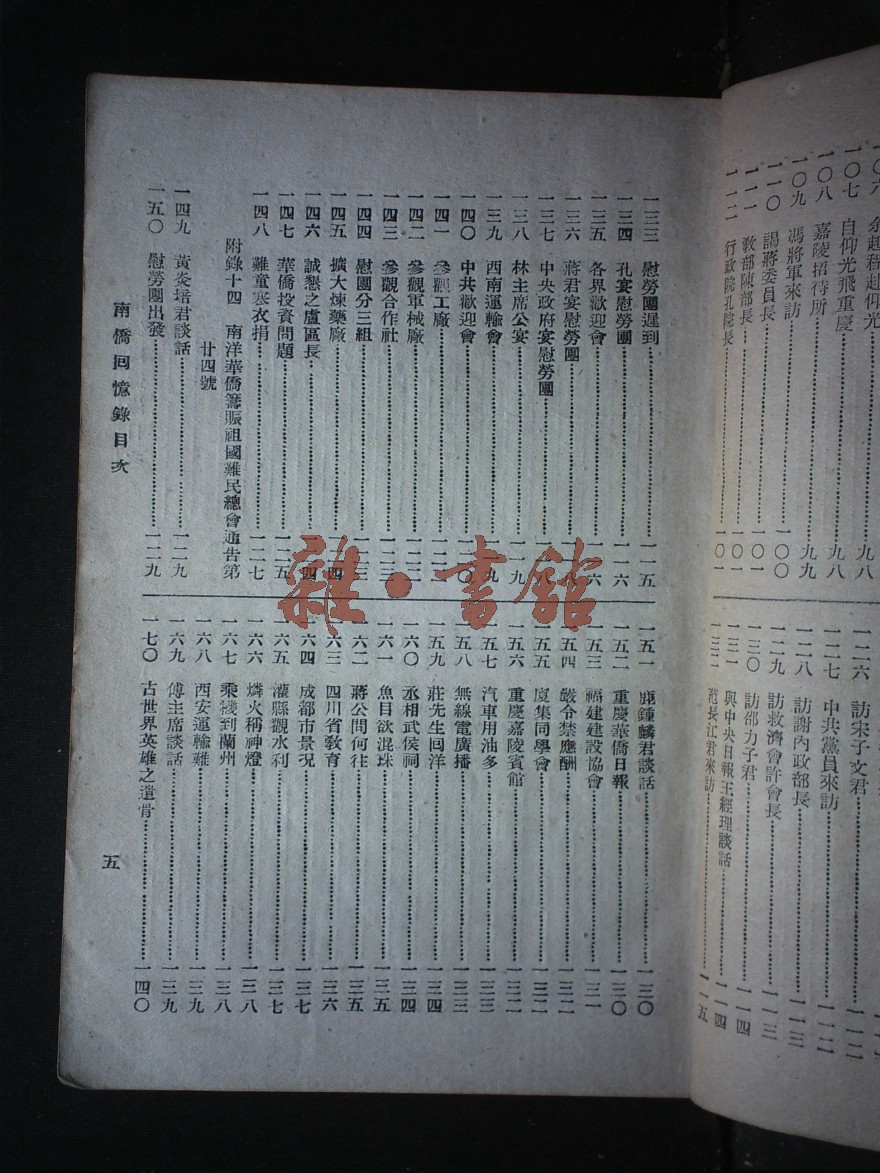 一〇六　余起程赴仰光……九八
一〇七　自仰光飛重慶……九八
一〇八　嘉陵招待所……九九
一〇九　馮將軍來訪……九九
一一〇　謁蔣委員長……一〇〇
一一一　教部陳部長……一〇一
一一二　行政院孔院長……一〇一
一二六　訪宋子文君……一一二
一二七　中共黨員來訪……一一二
一二八　訪謝內政部長……一一三
一二九　訪救濟會許會長……一一三
一三〇　訪邵力子君……一一四
一三一　與中央日報王經理談話……一一四
一三二　范長江君來訪……一一五
一三三　慰勞團遲到……一一五
一三四　孔宴慰勞團……一一六
一三五　各界歡迎會……一一六
一三六　蔣君宴慰勞團……
一三七　中央政府宴慰勞團……一一八
一三八　林主席公宴……一一九
一三九　西南運輸會……一一九
一四〇　中共歡迎會……一二〇
一四一　參觀工廠……一二二
一四二　參觀軍械廠……一二二
一四三　參觀合作社……一二三
一四四　慰團分三組……一二三
一四五　擴大煉藥廠……一二四
一四六　誠懇之盧區長……一二四
一四七　華僑投資問題……一二五
一四八　難童寒衣捐……一二七
附錄十四　南洋華僑籌賑祖國難民總會通告第
廿四號
一四九　黃炎培君談話……一二九
一五〇　慰勞團出發……一二九
一五一　鹿鍾麟君談話……一三〇
一五二　重慶華僑日報……一三〇
一五三　福建建設協會……一三一
一五四　嚴令禁應酬……一三二
一五五　廈集同學會……一三二
一五六　重慶嘉陵賓館……一三二
一五七　汽車用油多……一三三
一五八　無線電廣播……一三三
一五九　莊先生回洋……一三四
一六〇　丞相武侯祠……一三四
一六一　魚目欲混珠……一三五
一六二　蔣公問何往……一三五
一六三　四川省敎育……一三六
一六四　成都市景況……一三七
一六五　灌縣觀水利……一三七
一六六　燐火稱神燈……一三八
一六七　乘機到蘭州……一三八
一六八　西安運輸難……一三九
一六九　傅主席談話……一三九
一七〇　古世界英雄之遺骨……一四〇
南僑回憶錄目次
五
雜·書館